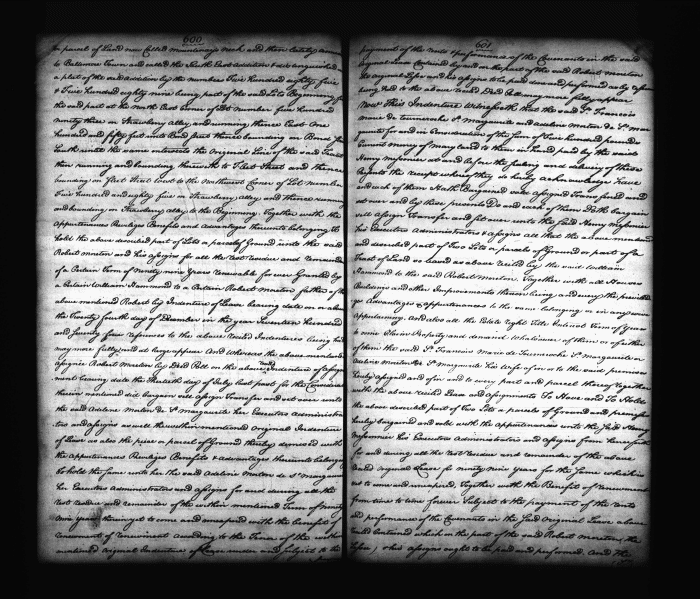 600
parcel of Land now Called mountenays neck and then lately
to Baltimore Town and called the South East addition & distinguished
a plat of the said addition by the numbers Five Hundred eighty five
& Five hundred eighty nine being part of the said Lots Beginning
the said part at the North East Corner of Lot number five hundred
ninety three on Strawberry alley and running thence East One
hundred and fifty feet unto Bond Street thence bounding on Bond
South until the same intersects the Original Line of the said Tract
then running and bounding therewith to Fleet Street and thence
bounding on Fleet Street West to the Northwest Corner of Lot number
Five hundred and eighty five on Strawberry alley and thence
and bounding on Strawberry alley to the Beginning. Together with the
Appurtenances Priviledges Benefits and advantages thereunto belonging To
hold the above described part of Lots or parcels of Ground unto the said
Robert Moreton and his assigns for all the rest residue and remainder
of a Certain Term of Ninety nine Years renewable for ever Granted by
a Certain William Hammond to a Certain Robert Moreton father of the
above mentioned Robert by Indenture of Lease bearing date on or about
the Twenty fourth day of December in the year Seventeen hundred
and seventy four reference to the above recited Indentures being had
may more fully and at large appear And Whereas the above mentioned
assignee Robert Moreton by Deed Poll on the above recited Indenture of assign
ment bearing date the Thirtieth day of July last past for the Consideration
therein mentioned did bargain sell assign Transfer and set over unto
the said Adelaine St marguerite her Executors Administra
tors and assigns as well the within mentioned original Indenture
of Lease as also the piece or parcel of Ground thereby demised with
the appurtenances Priviledges Benefits & advantages thereunto belonging
To hold the same unto her the said St marguerite
her Executors Administrators and assigns for and during all the
rest residue and remainder of the within mentioned Term of Ninety
nine years therein yet to come and unexpired with the benefit of
renewment of renewments according to the Tenor of the within
mentioned original Indenture of Lease under and Subject to the
601
payment of the rents & performance of the Covenants in the said
original Lease Contained by and on the part of the said Robert Moreton
his assigns to be paid and performed as by reference
being had to the above recited Deed Poll may more fully appear
Now This Indenture Witnesseth that the said St Francois
marie de St marguerite and St Mar
guerite for and in Consideration of the Sum of Five Hundred pounds
Current money of maryland to them in hand paid by the said
Henry at and before the sealing and delivery of these
Presents the receipt whereof they do hereby acknowledge Have
and each of them Hath Bargained sold assigned Transferred and
set over and by these presents Do and each of them Doth bargain
sell assign Transfer and set over unto the said Henry
his Executors Administrators & assigns all that the above mentioned
and described part of Two Lots or parcels of Ground or part of a
Tract of Land as leased as above recited by the said William
Hammond to the said Robert Moreton. Together with all Houses
Buildings and other Improvements thereon being and every the priviled
ges Advantages & appurtenances to the same belonging or in any wise
Appertaining. And also all the Estate right Title Interest Term of years
to come Claim Property and demand Whatsoever of them or either
of them the said St Francois Marie de St marguerite or
St marguerite his wife of in or to the said premises
hereby assigned and of in and to every part and parcel thereof together
with the above recited Lease and assignments To Have and To Hold
the above described part of Two Lots or parcels of Ground and premises
hereby bargained and sold with the appurtenances unto the said Henry
his Executors Administrators and assigns from henceforth
for and during all the rest residue and remainder of the above
recited original Lease for ninety nine Years for the same which is
yet to come and unexpired, Together with the Benefit of renewment
from time to time forever Subject to the payment of the rents
and performance of the Covenants in the said Original Lease above
recited Contained which on the part of the said Robert Moreton, the
Lessee, or his assigns ought to be paid and performed. And the